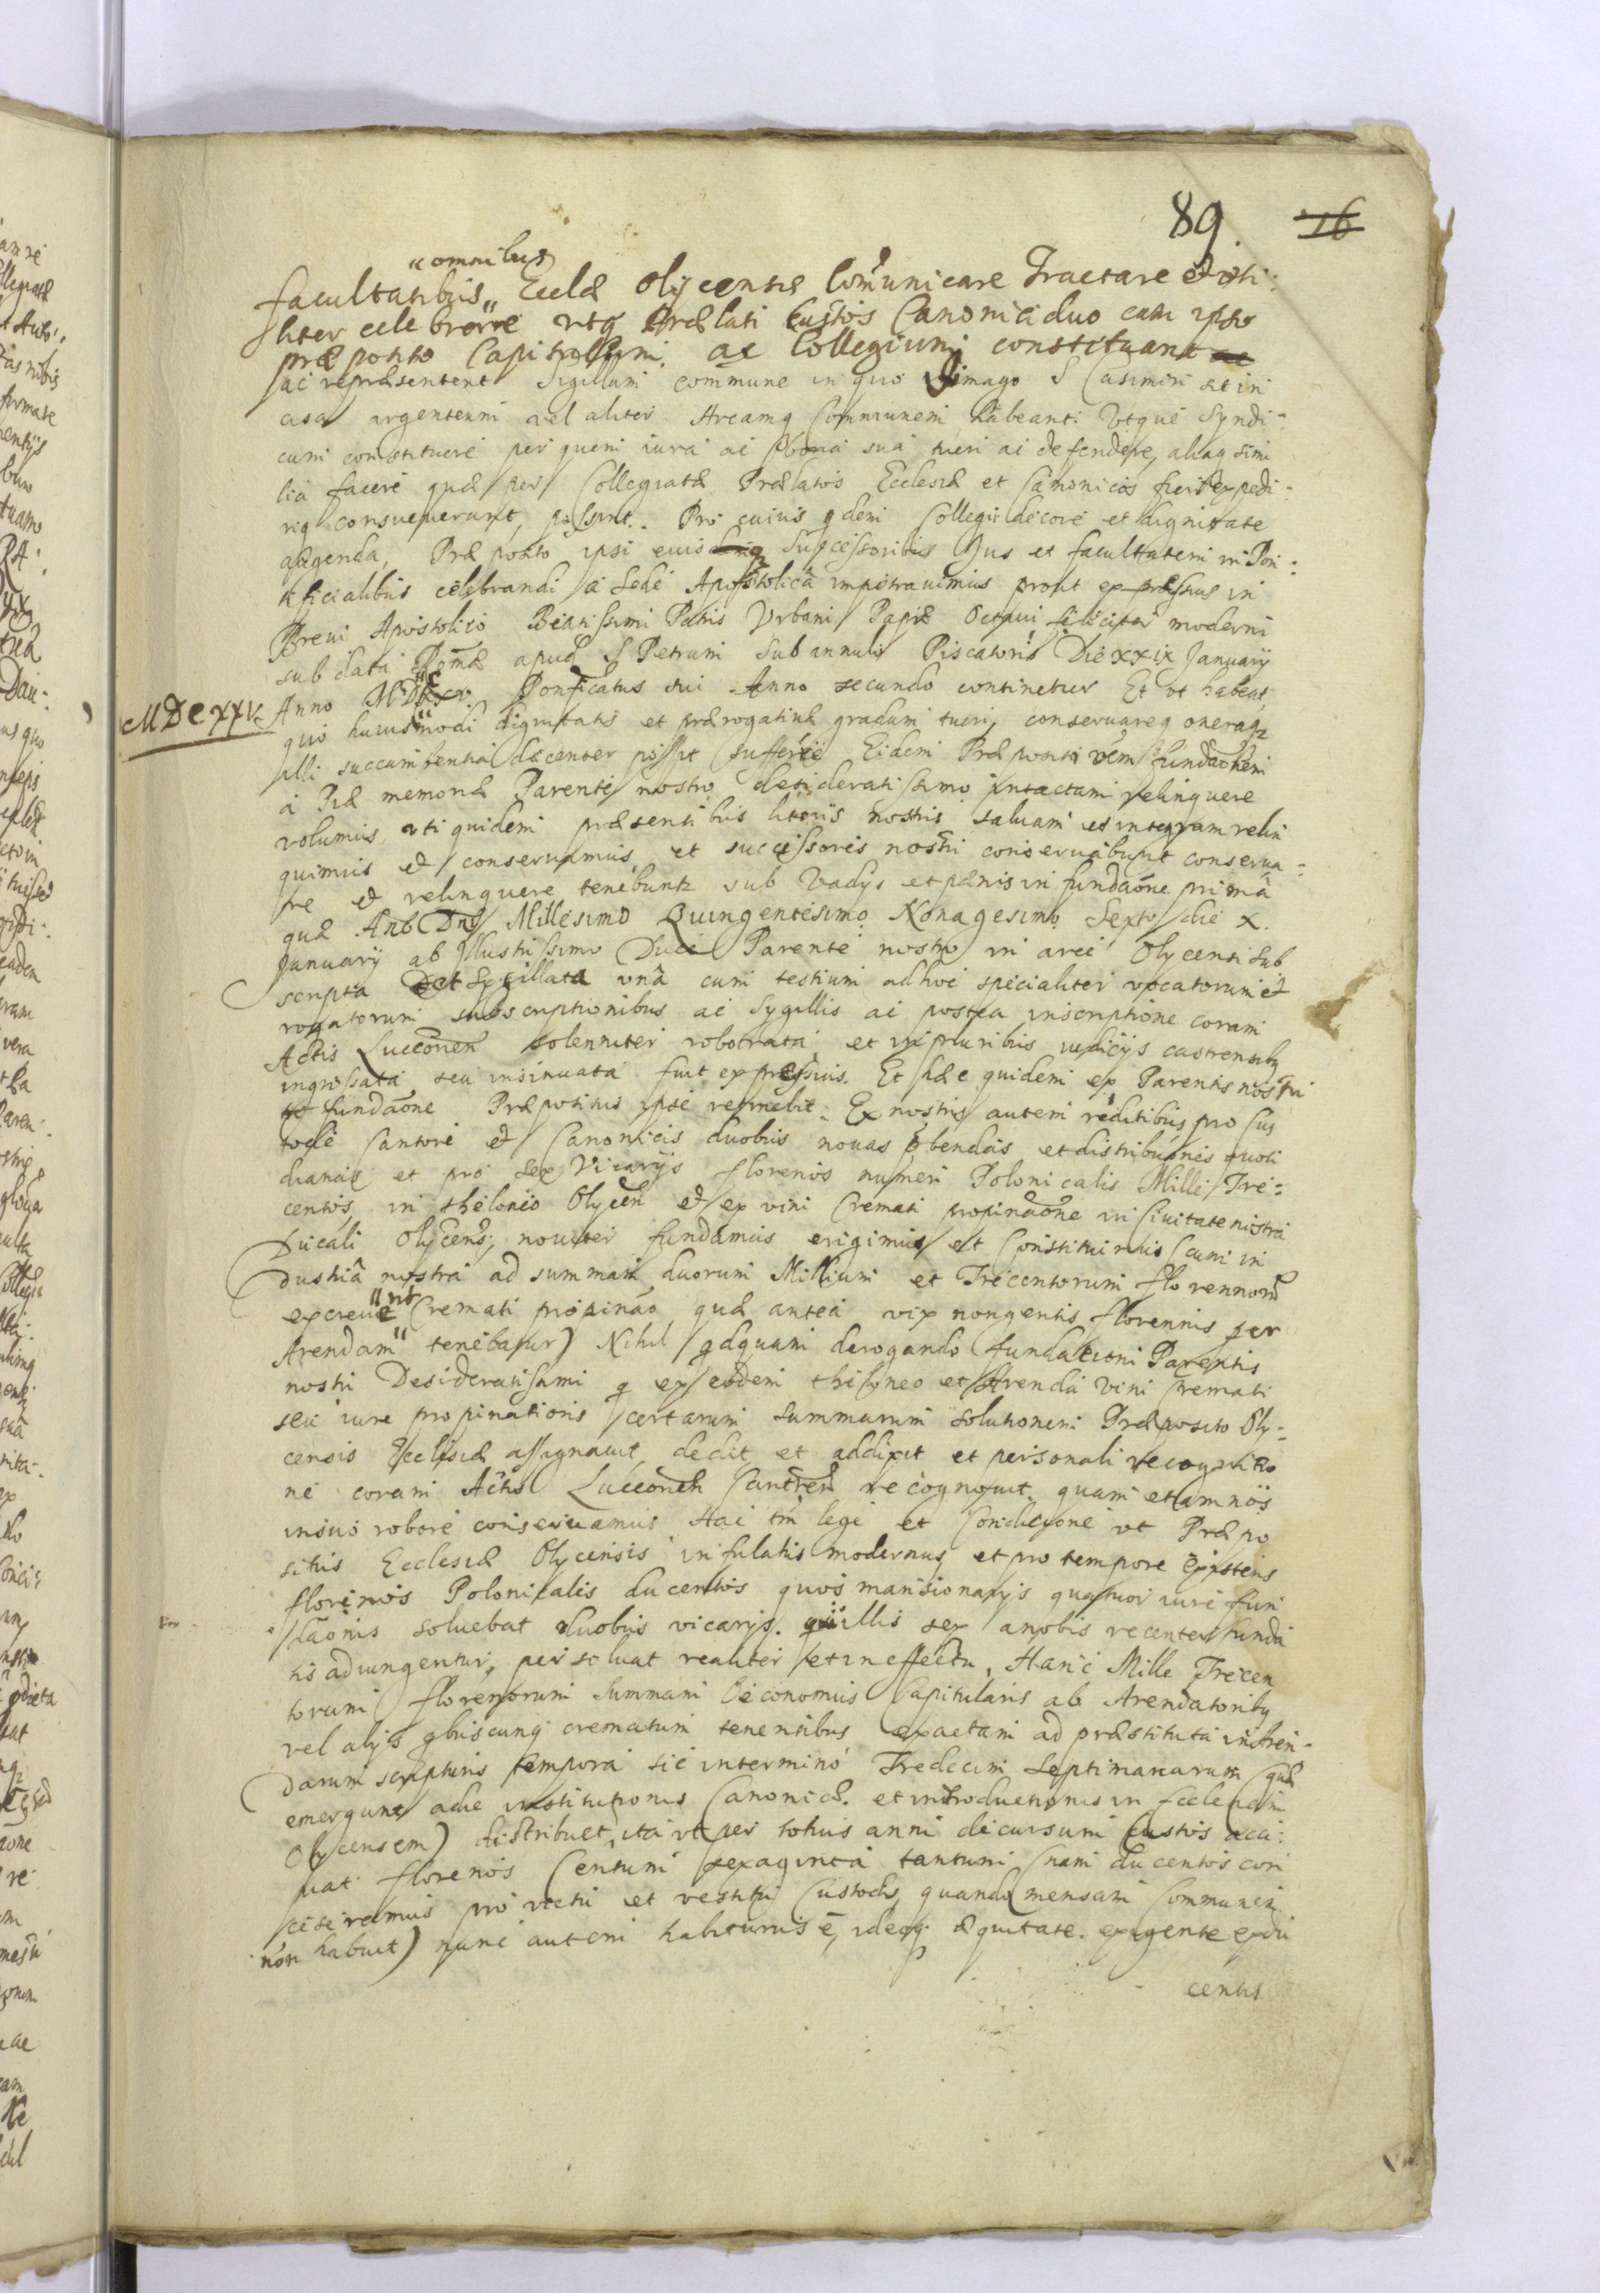 89. 16
"omnibus
facultatibus" Ecclæ Olycensis Comunicare Tractare et uti:
liter celebrare utq Prælati Custos Canonici duo cum ipso
præposito Capitulum ac Collegium constituant ac
ac repræsentent Sigillum commune in quo Imago S Casimiri sit in
cisa argenteum vel aliter Arcamq Communem habeant. Utque Syndi:
cum constituere per quem iura ac bona sua tueri ac defendere, aliaq simi
lia facere quæ per Collegiatæ Prælatos Ecclesiæ et Canonicos fieri expedi:
riq consueuerunt, possint. Pro cuius qdem Collegii decore et dignitate
augenda, Præposito ipsi eiusdemq Successoribus Jus et facultatem in Pon:
tificialibus celebrandi a Sede Apostolica impetrauimus prout expressius in
Breui Apostolico Beatissimi Patris Urbani Papæ Octaui feliciter moderni
sub data Romæ apud S Petrum sub annulo Piscatoris Die XXIX January
Anno MDCXXV. Pontificatus sui Anno secundo continetur Et ut habeat,
MDCXXV.
quo huiusmodi dignitatis et prærogatiuæ gradum tueri, conseruareq oneraq
illi succumbentia decenter possit sufferre Eidem Præposito vêm fundaōnem
a Piæ memoriæ Parente nostro desideratissimo intactam relinquere
volumus, uti quidem præsentibus literis nostris saluam et integram relin
quimus et conseruamus, et successores nostri conseruabunt conserua:
re et relinquere tenebuntr sub Vadys et pænis in fundaōne prima
quæ Anō Dnī Millesimo Quingentesimo Nonagesimo Sexto die X.
January ab Illustrissimo Duce Parente nostro in arce Olycensi sub
scripta et Sygillata unâ cum testium ad hoc specialiter vocatorum et
rogatorum subscriptionibus ac Sygillis ac postea inscriptione coram
Actis Lucéoneñ solenniter roborata et in pluribus iudicijs castrensibq
ingrossata seu insinuata fuit expressius. Et hæc quidem ex Parentis nostri
fundaōne Præpositus ipse retinebit. Ex nostris autem reditibus pro Cus
tode Cantore et Canonicis duobus nouas pbendas, et distributiones quoti
dianas et pro sex Vicarijs florenos numeri Polonicalis Mille Tre:
centos, in theloneo Olyceñ et ex vini Cremati propinaōne in Ciuitate nostra
Ducali Olycens; nouiter fundamus erigimus et Constituimus (cum in
dustriâ nostra ad summam duorum Millium et Trecentorum florennorū
excreue"rit Cremati propinaō quæ antea vix nongentis florennis per
Arendam" tenebatur) Nihil qdquam derogando fundationi Parentis
nostri Desideratissimi q ex eodem theloneo et Arenda Vini Cremati
seu iure propinationis certarum summarum solutionem Præposito Oly:
censis Ecclesiæ assignauit, dedit et addixit et personali recognitio
ne coram Actis Luceoneñ Castreñ recognouit. quam etiam nos
in suo robore conseruamus. Hac tm̄ lege et Condicione ut Præpo
situs Ecclesiæ Olycensis infulatus modernus, et pro tempore existens
florenos Polonicales ducentos quos mansionarijs quatuor iure fun
daōnis soluebat duobus vicarijs. qui illis sex a nobis recenter funda
tis adiungentur, persoluat realiter et in effectu, Hanc Mille Trecen
torum florenorum Summam Oeconomus Capitularis ab Arendatoribq
vel alijs qbuscunq crematum tenentibus exactam ad præstituta in Aren:
darum scripturis tempora sic in termino Tredecim Septimanarum (quæ
emergunt a die institutionis Canonicæ. et introductionis in Ecclesiam
Olycensem) distribuet, ita ut per totius anni decursum Custos acci:
piat florenos Centum sexaginta tantum (nam ducentos con
cesseramus pro victu et vestitu Custodis, quando mensam Communem
non habuit) nunc autem habiturus ē, ideoq; æquitate. exigente ex du
centis